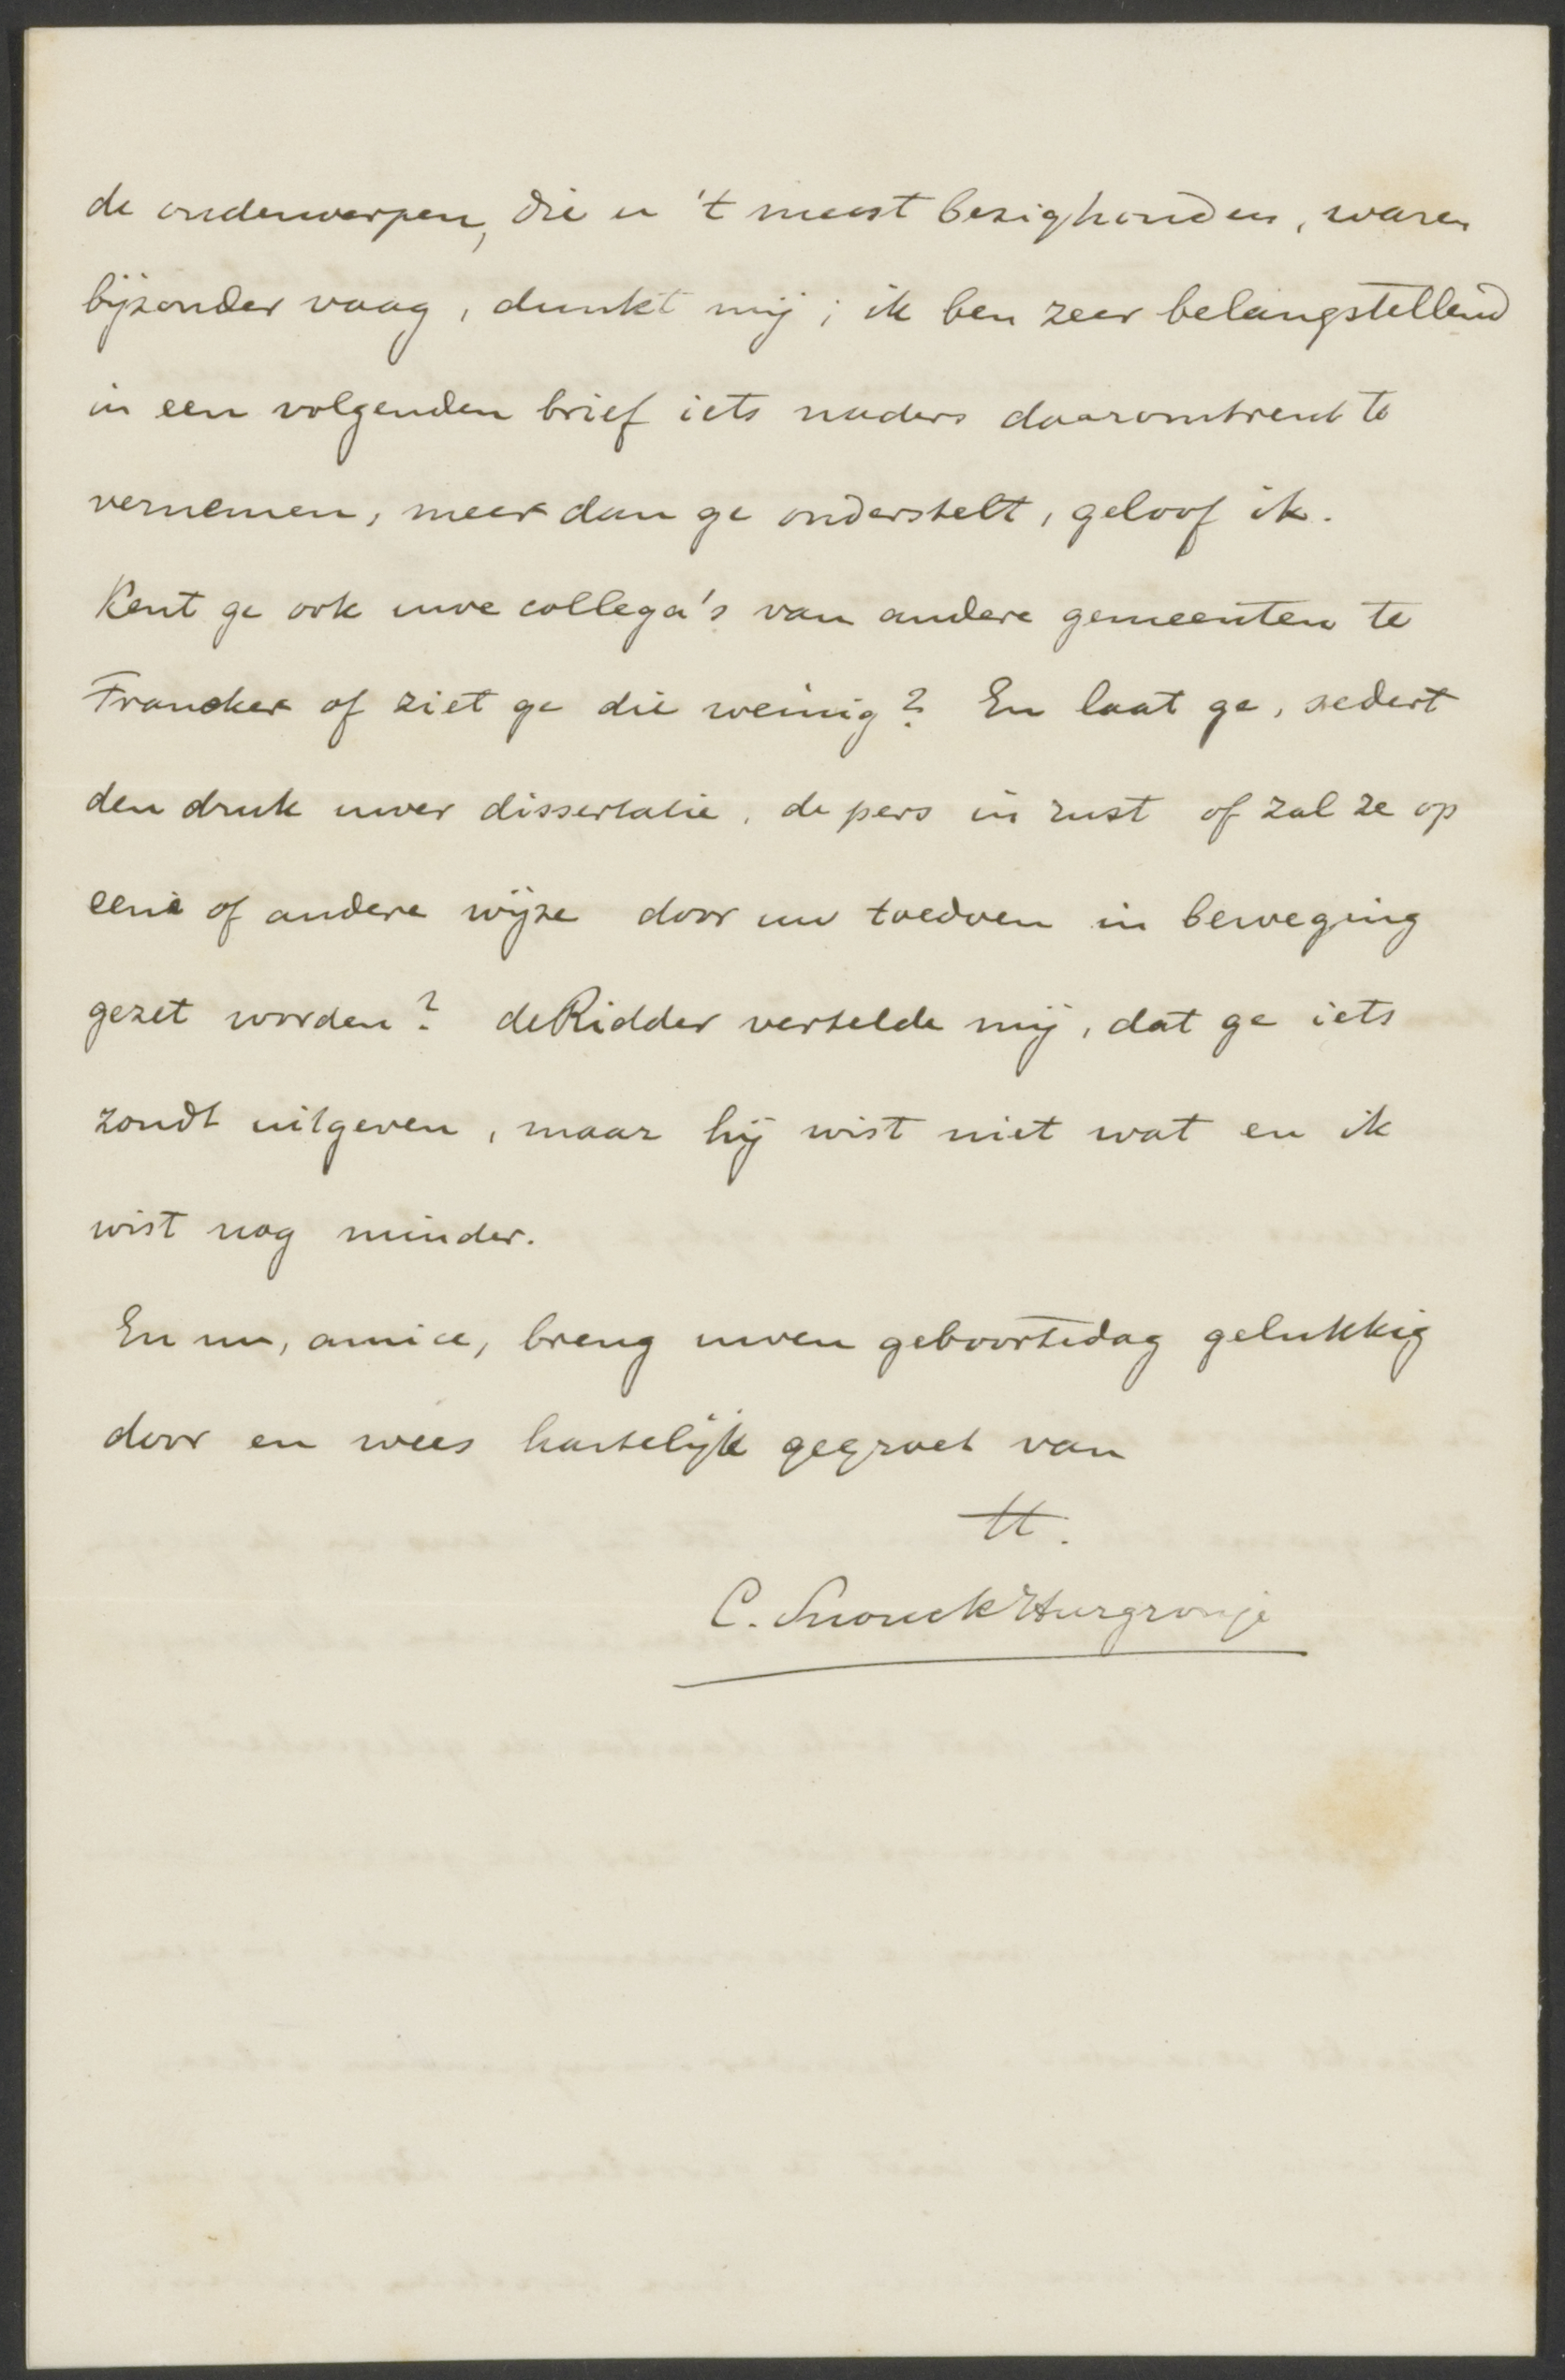 de onderwerpen, die u 't meest bezighouden, waren
bijzonder vaag, dunkt mij; ik ben zeer belangstellend
in een volgenden brief iets naders daaromtrent te
vernemen, meer dan ge onderstelt, geloof ik.
Kent ge ook uwe collega's van andere gemeenten te
Franeker of ziet ge die weinig? En laat ge, sedert
den druk uwer dissertatie, de pers in rust of zal ze op
eene of andere wijze door uw toedoen in beweging
gezet worden? de Ridder vertelde mij, dat ge iets
zoudt uitgeven, maar hij wist niet wat en ik
wist nog minder.
En nu, amice, breng uwen geboortedag gelukkig
door en wees hartelijk gegroet van
tt.
C. Snouck Hurgronje